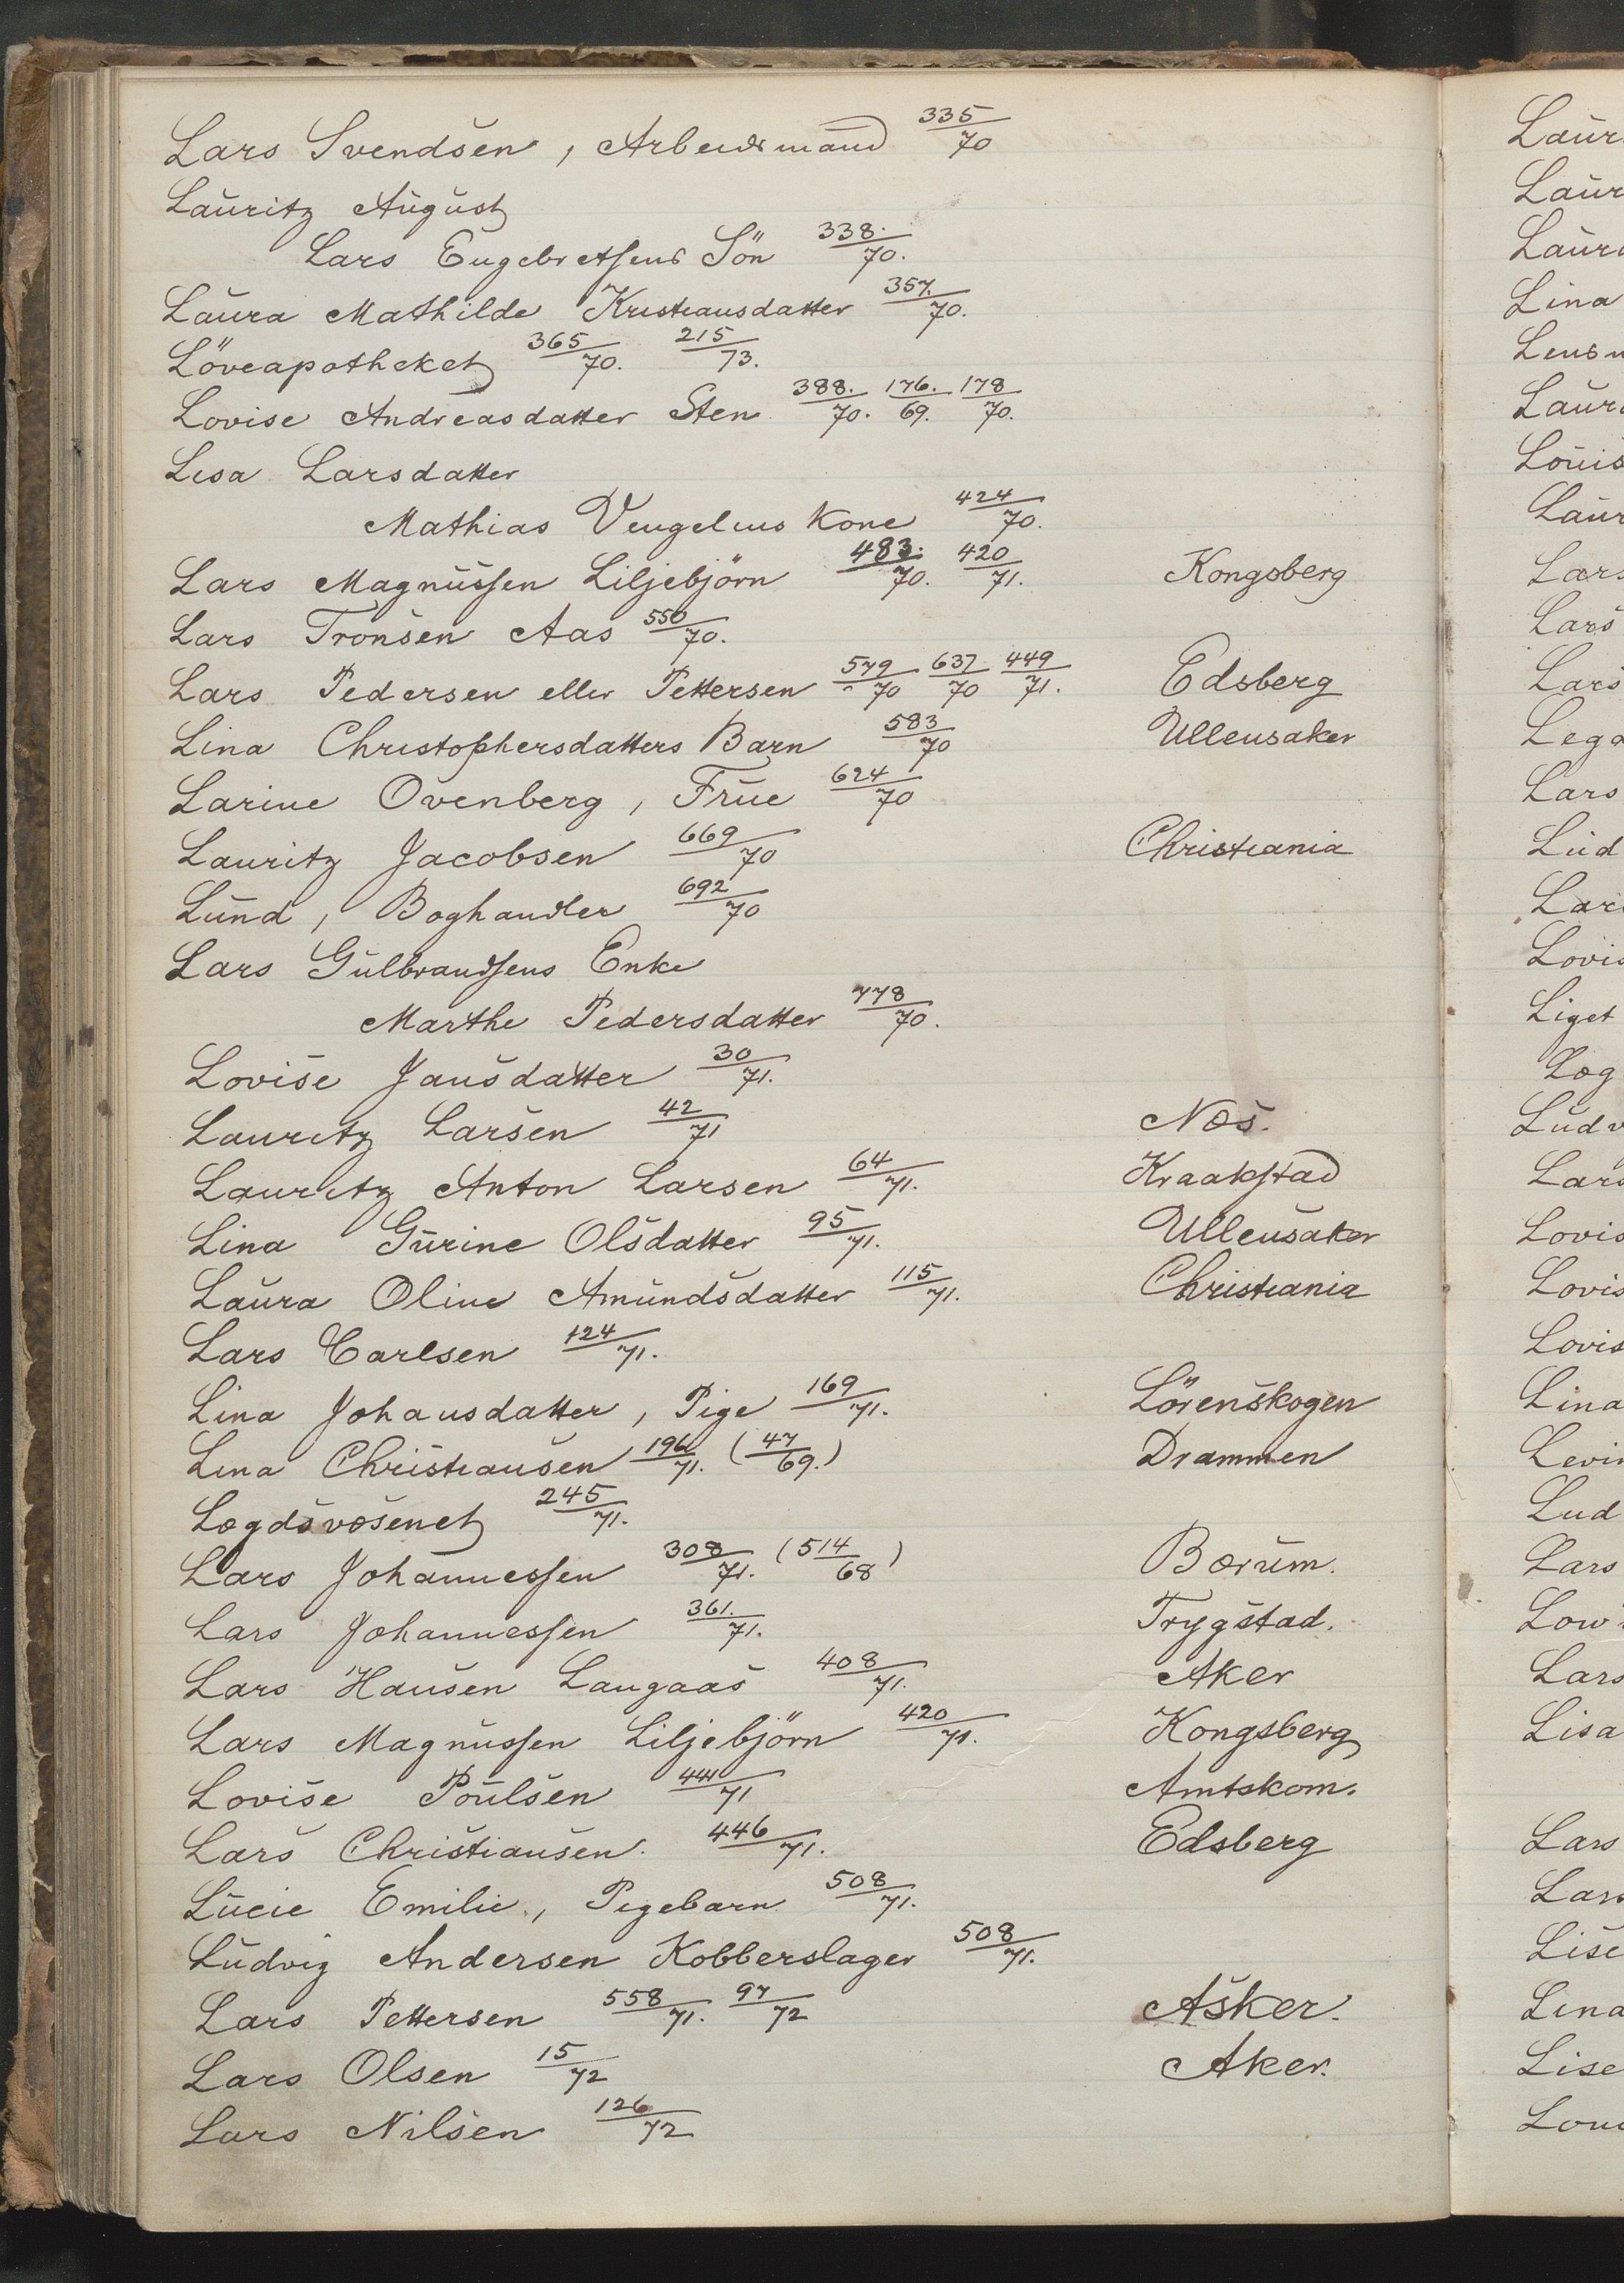 Lars Svendsen, Arbeidsmand 335/70
Lauritz August
Lars Engebretsens Sön 338./70.
Laura Mathilde Kristiansdatter 357./70.
Löveapotheket 365/70. 215/73.
Lovise Andreasdatter Sten 388./70. 176./69. 178/70.
Lisa Larsdatter
Mathias Vengelins Kone 424/70.
Lars Magnussen Liljebjörn 483./70. 420/71. Kongsberg
Lars Tronsen Aas 550/70.
Lars Pedersen eller Pettersen 579/70 637/70 449/71. Edsberg
Lina Christophersdatters Barn 583/70 Ullensaker
Larine Ovenberg, Frue 624/70
Lauritz Jacobsen 669/70 Christiania
Lund, Boghandler 692/70
Lars Gulbrandsens Enke
Marthe Pedersdatter 778/70.
Lovise Jansdatter 30/71.
Lauritz Larsen 42/71 Næs.
Lauritz Anton Larsen 64/71. Kraakstad
Lina Gurine Olsdatter 95/71. Ullensaker
Laura Oline Amundsdatter 115/71. Christiania
Lars Carlsen 124/71.
Lina Johansdatter, Pige 169/71. Lörenskogen
Lina Christiansen 196/71. (47/69.) Drammen
Lægdsvæsenet 245/71.
Lars Johannessen 308/71. (514/68) Bærum.
Lars Johannessen 361./71. Trygstad.
Lars Hansen Langaas 408/71. Aker
Lars Magnussen Liljebjörn 420/71. Kongsberg
Lovise Poulsen 441/71 Amtskom.
Lars Christiansen. 446/71. Edsberg
Lucie Emilie, Pigebarn 508/71.
Ludvig Andersen Kobberslager 508/71.
Lars Pettersen 558/71. 97/72 Asker.
Lars Olsen 15/72 Aker.
Lars Nilsen 126/72
Laur
Laur
Laur
Lina
Lens
Laur
Louis
Laur
Lars
Lars
Lars
Lega
Lars
Lud
Lar
Lovis
Liget
Læg
Ludv
Lars
Lovis
Lovis
Lovis
Lina
Levin
Lud
Lars
Low
Lars
Lisa
Lars
Lars
Lise
Lina
Lise